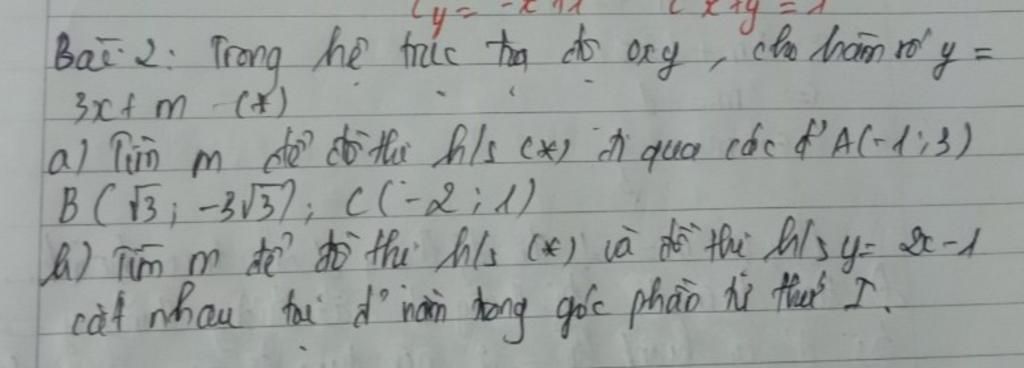 y = -x+1 x+y=1
Bài 2: Trong hệ trục tọa độ oxy, cho hàm số y =
3x + m (*)
a) Tìm m để đồ thị h/s (*) đi qua các đ' A(-1; 3)
B(√3; -3√3); C(-2; 1)
b) Tìm m để đồ thị h/s (*) và đồ thị h/s y = 2x - 1
cắt nhau tại đ' nằm trong góc phần tư thứ I.